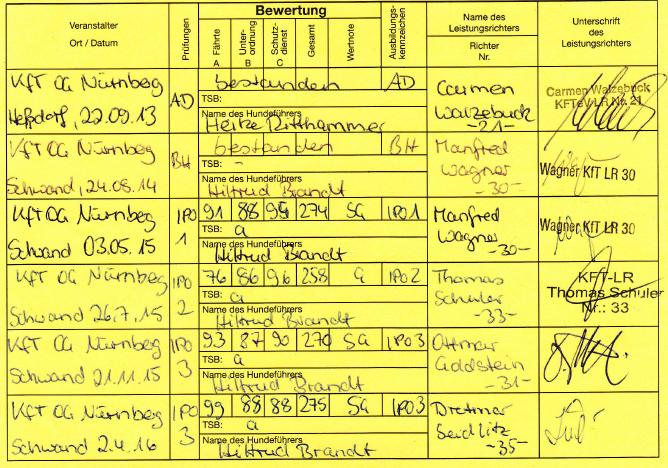 Veranstalter
Ort / Datum
Prüfungen
Bewertung
Fährte
A
Unter-
ordnung
B
Schutz-
dienst
C
Gesamt
Wertnote
Ausbildungs-
kennzeichen
Name des Leistungsrichters
Richter
Nr.
Unterschrift
des
Leistungsrichters
KfT OG Nürnberg
Heßdorf, 22.09.13
AD
bestanden
AD
TSB:
Name des Hundeführers
Carmen
Walzebuck
-21-
Carmen Walzebuck
KFT eV LR Nr. 21
KfT OG Nürnberg
Schwand, 24.08.14
BH
bestanden
BH
TSB: -
Name des Hundeführers
Hiltrud Brandt
Manfred
Wagner
-30-
Wagner KfT LR 30
KfT OG Nürnberg
Schwand 03.05.15
IPO
1
91 88 95 274 SG IPO1
TSB: a
Name des Hundeführers
Hiltrud Brandt
Manfred
Wagner
-30-
Wagner KfT LR 30
KfT OG Nürnberg
Schwand 26.7.15
IPO
2
76 86 96 258 G IPO2
TSB: a
Name des Hundeführers
Hiltrud Brandt
Thomas
Schüler
-33-
KFT-LR
Thomas Schüler
Nr.: 33
KfT OG Nürnberg
Schwand 21.11.15
IPO
3
93 87 90 270 SG IPO3
TSB: a
Name des Hundeführers
Hiltrud Brandt
Ottmar
Goldstein
-31-
KfT OG Nürnberg
Schwand 2.4.16
IPO
3
99 88 88 275 SG IPO3
TSB: a
Name des Hundeführers
Hiltrud Brandt
Dietmar
Seidlitz
-35-